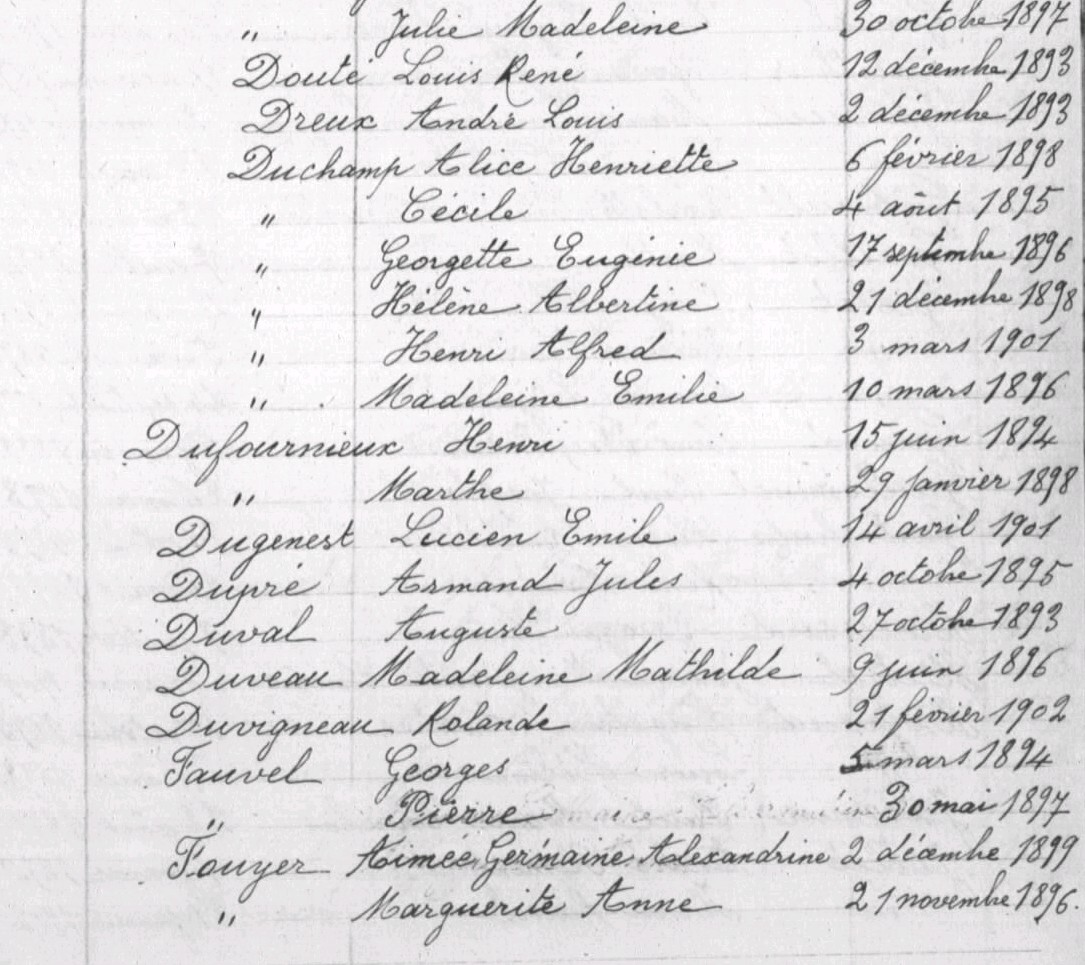 " Julie Madeleine 30 octobre 1897
Douté Louis René 12 décembre 1893
Dreux André Louis 2 décembre 1893
Duchamp Alice Henriette 6 février 1898
" Cécile 4 août 1895
" Georgette Eugénie 17 septembre 1896
" Hélène Albertine 21 décembre 1898
" Henri Alfred 3 mars 1901
" Madeleine Emilie 10 mars 1896
Dufournieux Henri 15 juin 1894
" Marthe 29 janvier 1898
Dugenest Lucien Emile 14 avril 1901
Dupré Armand Jules 4 octobre 1895
Duval Auguste 27 octobre 1893
Duveau Madeleine Mathilde 9 juin 1896
Duvigneau Rolande 21 février 1902
Fauvel Georges 5 mars 1894
" Pierre 30 mai 1897
Fouyer Aimée Germaine Alexandrine 2 décembre 1899
" Marguerite Anne 21 novembre 1896.